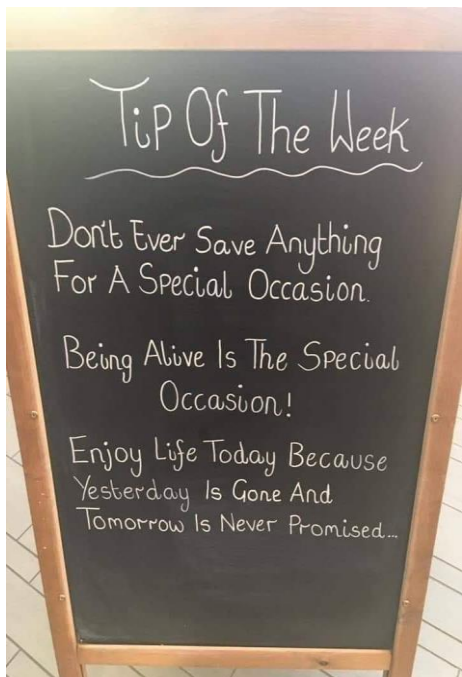 Tip Of The Week
Don't Ever Save Anything
For A Special Occasion.
Being Alive Is The Special
Occasion!
Enjoy Life Today Because
Yesterday Is Gone And
Tomorrow Is Never Promised...